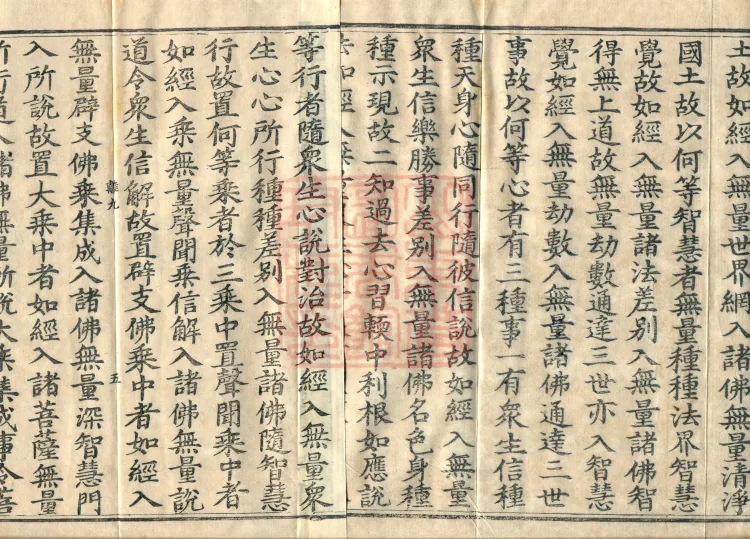 土故如經入無量世界網入諸佛無量清淨
國土故以何等智慧者無量種種法界智慧
覺故如經入無量諸法差別入無量諸佛智
得無上道故無量劫數通達三世亦入智慧
覺如經入無量劫數入無量諸佛通達三世
事故以何等心者有三種事一有衆生信種
種天身心隨同行隨彼信說故如經入無量
衆生信樂勝事差別入無量諸佛名色身種
種示現故二知過去心習輭中利根如應說
法如經入無
等行者隨衆生心說對治故如經入無量衆
生心心所行種種差別入無量諸佛隨智慧
行故置何等乘者於三乘中置聲聞乘中者
如經入乘無量聲聞乘信解入諸佛無量說
道令衆生信解故置辟支佛乘中者如經入
九
五
無量辟支佛乘集成入諸佛無量深智慧門
入所說故置大乘中者如經入諸菩薩無量
所行道入諸佛無量所說大乘集成事令菩